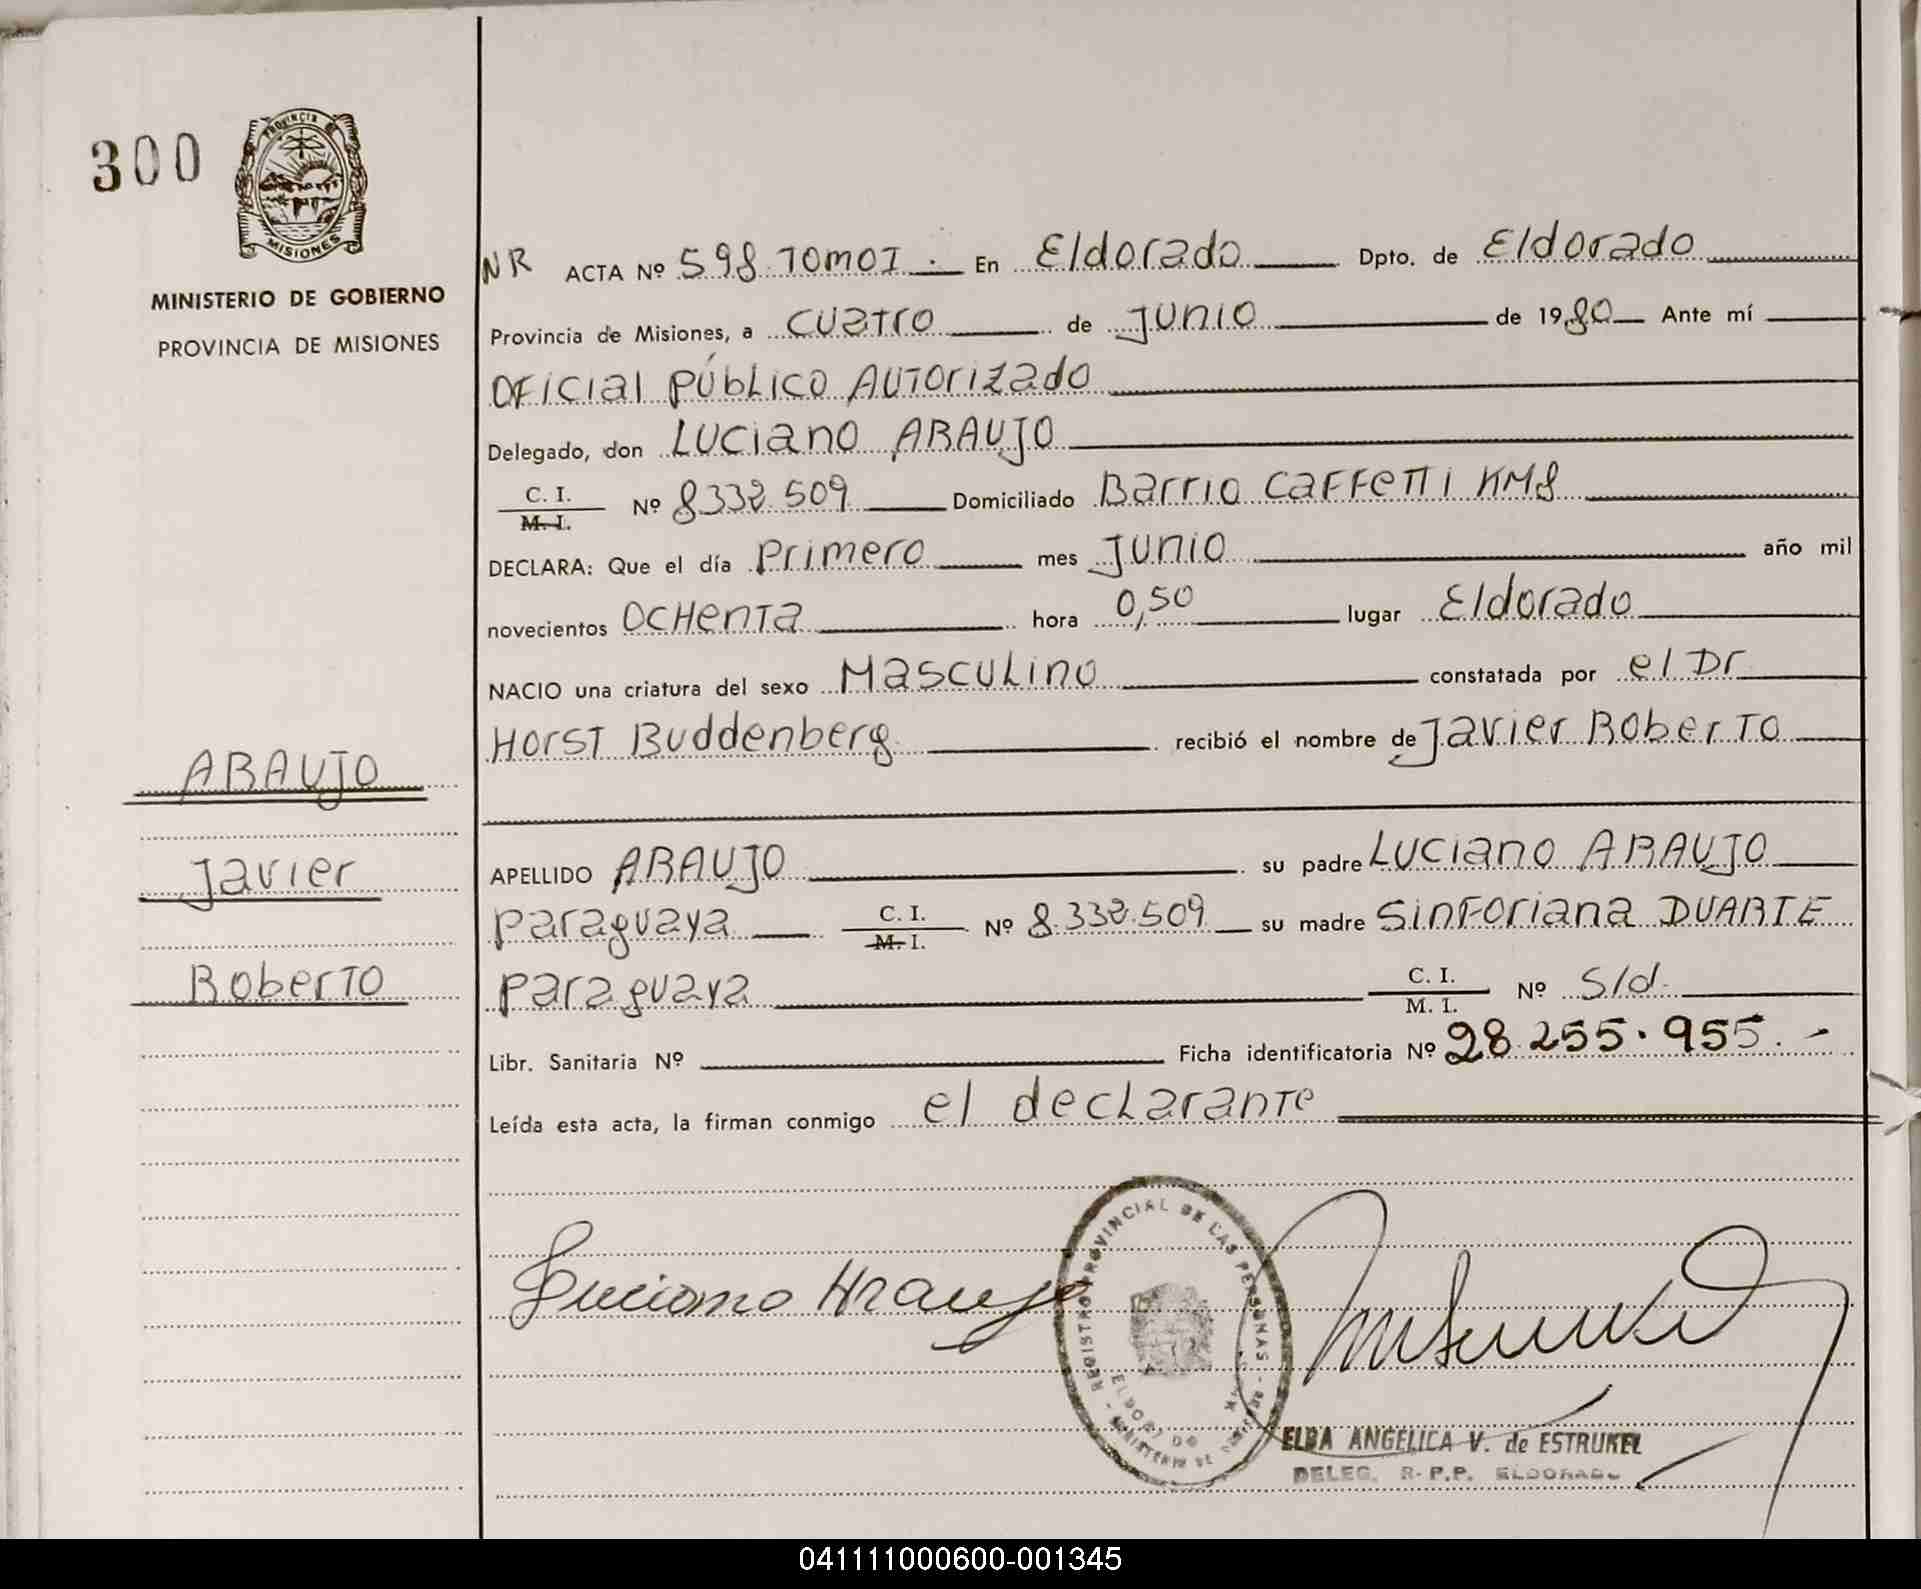 300
PROVINCIA DE
MISIONES
MINISTERIO DE GOBIERNO
PROVINCIA DE MISIONES
ARAUJO
Javier
Roberto
NR ACTA Nº 598 TOMO I. En Eldorado Dpto. de Eldorado
Provincia de Misiones, a cuatro de junio de 1980 Ante mí
Oficial Público Autorizado
Delegado, don Luciano ARAUJO
C. I. / M. I. Nº 8332.509 Domiciliado Barrio Caffetti KM8
DECLARA: Que el día primero mes junio año mil
novecientos ochenta hora 0,50 lugar Eldorado
NACIO una criatura del sexo Masculino constatada por el Dr
Horst Buddenberg recibió el nombre de Javier Roberto
APELLIDO ARAUJO su padre Luciano ARAUJO
paraguaya C. I. / M. I. Nº 8.332.509 su madre Sinforiana DUARTE
paraguaya C. I. / M. I. Nº S/d.
Libr. Sanitaria Nº Ficha identificatoria Nº 28.255.955.-
Leída esta acta, la firman conmigo el declarante
Luciano Araujo
REGISTRO PROVINCIAL DE LAS PERSONAS
ELDORADO
MINISTERIO DE
ELBA ANGELICA V. de ESTRUKEL
DELEG. R.P.P. ELDORADO
041111000600-001345